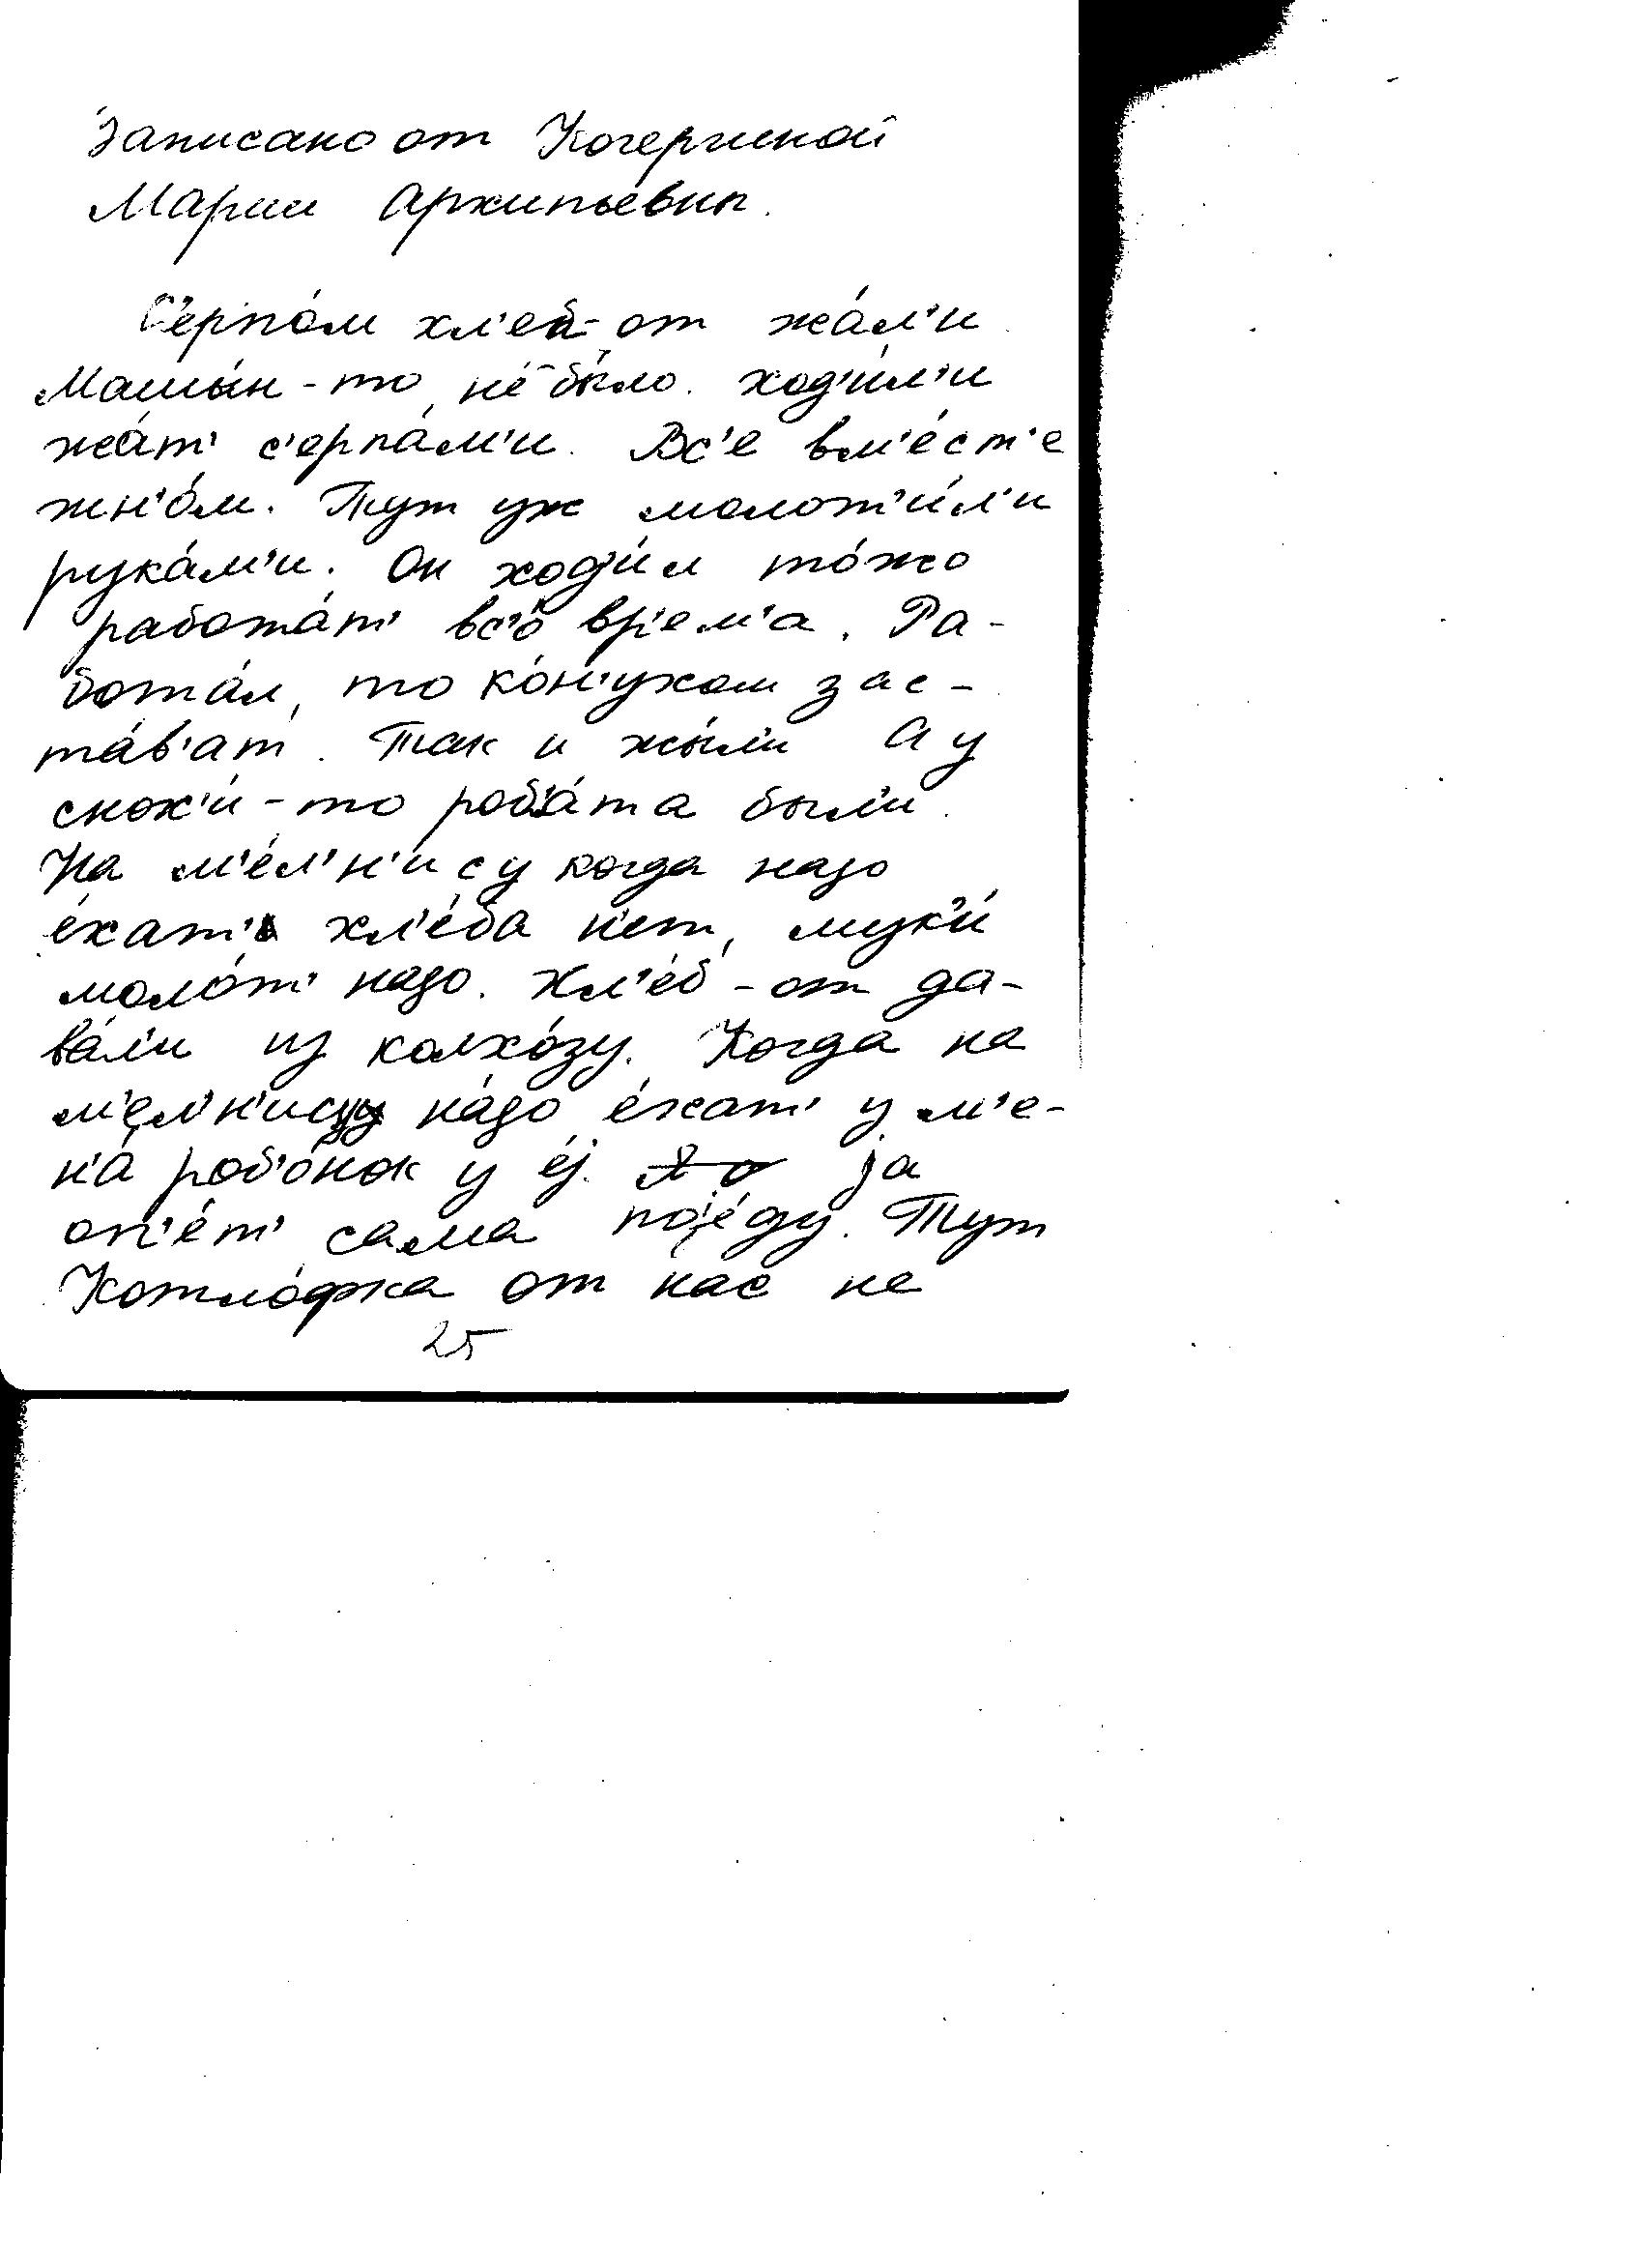 Записано от Кочергиной
Марии Архипьевны.
С'ерпо́м хл'еб-от жа́л'и.
Машы́н-то не́ было. Ход'и́л'и
жа́т' с'ерпа́м'и. Вс'е вм'е́ст'е
жн'о́м. Тут уж молот'и́л'и
рука́м'и. Он ход'и́л то́жо
работа́т' вс'о́ вр'ем'а. Ра-
бота́л, то ко́н'ухом зас-
та́в'ат. Так и жы́л'и А у
снох'и́-то роб'а́та был'и.
На м'е́л'н'ису когда надо
е́хат' хл'е́ба н'ет, мук'и́
моло́т' надо. Хл'е́б-от да-
ва́л'и из колхо́зу. Когда на
м'е́л'н'ицу на́до е́хат' у м'е-
н'а́ роб'о́нок у е́j. jа
оп'е́т' сама поjе́ду. Тут
Котло́фка от нас не
25